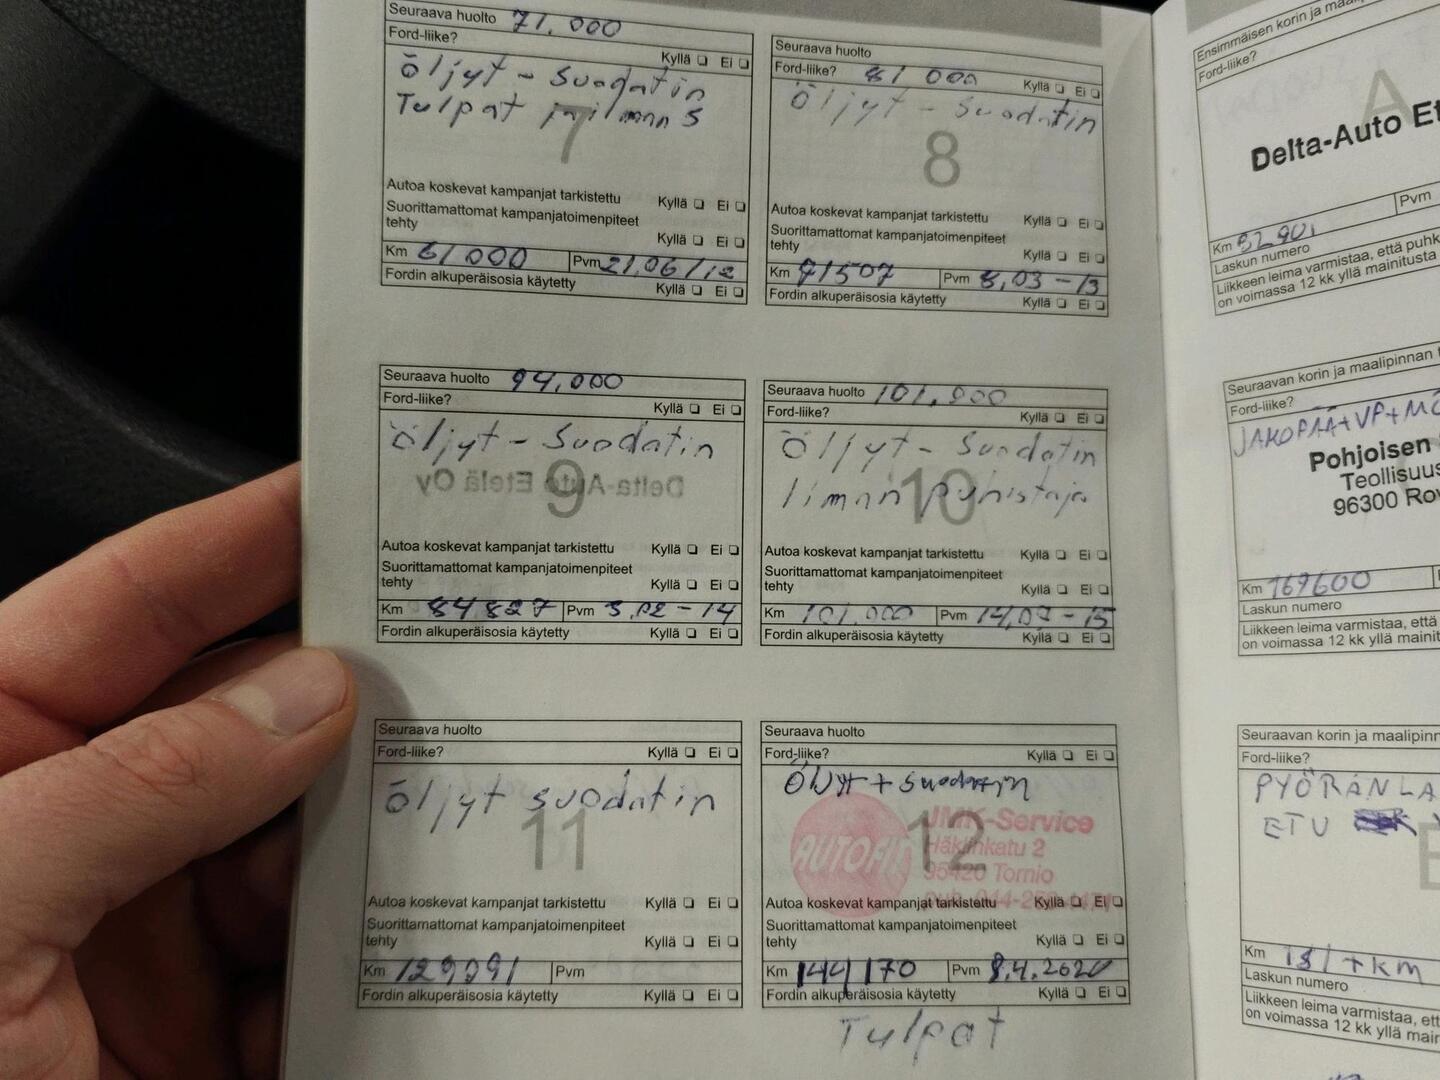 Seuraava huolto 71,000
Ford-liike?
Kyllä ❑ Ei ❑
Öljyt - Suodatin
Tulpat ja ilman S
7
Autoa koskevat kampanjat tarkistettu Kyllä ❑ Ei ❑
Suorittamattomat kampanjatoimenpiteet
tehty Kyllä ❑ Ei ❑
Km 61000 Pvm 21,06/12
Fordin alkuperäisosia käytetty Kyllä ❑ Ei ❑
Seuraava huolto
Ford-liike? 81 000 Kyllä ❑ Ei ❑
Öljyt - Suodatin
8
Autoa koskevat kampanjat tarkistettu Kyllä ❑ Ei ❑
Suorittamattomat kampanjatoimenpiteet
tehty Kyllä ❑ Ei ❑
Km 71507 Pvm 8,03-13
Fordin alkuperäisosia käytetty Kyllä ❑ Ei ❑
Seuraava huolto 94,000
Ford-liike? Kyllä ❑ Ei ❑
Öljyt - Suodatin
Delta-Auto Etelä Oy
9
Autoa koskevat kampanjat tarkistettu Kyllä ❑ Ei ❑
Suorittamattomat kampanjatoimenpiteet
tehty Kyllä ❑ Ei ❑
Km 84827 Pvm 3,02-14
Fordin alkuperäisosia käytetty Kyllä ❑ Ei ❑
Seuraava huolto 101,000
Ford-liike? Kyllä ❑ Ei ❑
Öljyt - Suodatin
Ilman puhistaja
10
Autoa koskevat kampanjat tarkistettu Kyllä ❑ Ei ❑
Suorittamattomat kampanjatoimenpiteet
tehty Kyllä ❑ Ei ❑
Km 101,000 Pvm 14,07-15
Fordin alkuperäisosia käytetty Kyllä ❑ Ei ❑
Seuraava huolto
Ford-liike? Kyllä ❑ Ei ❑
Öljyt suodatin
11
Autoa koskevat kampanjat tarkistettu Kyllä ❑ Ei ❑
Suorittamattomat kampanjatoimenpiteet
tehty Kyllä ❑ Ei ❑
Km 129091 Pvm
Fordin alkuperäisosia käytetty Kyllä ❑ Ei ❑
Seuraava huolto
Ford-liike? Kyllä ❑ Ei ❑
Öljyt + suodatin
12
AUTOFIT
JMK-Service
2
95420 Tornio
Autoa koskevat kampanjat tarkistettu Kyllä ❑ Ei ❑
Suorittamattomat kampanjatoimenpiteet
tehty Kyllä ❑ Ei ❑
Km 144170 Pvm 8.4.2020
Fordin alkuperäisosia käytetty Kyllä ❑ Ei ❑
Tulpat
Ensimmäisen korin ja
Ford-liike?
A
Delta-Auto Et
Km Pvm
Laskun numero
Liikkeen leima varmistaa, että puhk
on voimassa 12 kk yllä mainitusta
Seuraavan korin ja maalipinnan
Ford-liike?
JAKOPÄÄ+VP+
Pohjoisen
Teollisuus
96300 Rov
Km 169600
Laskun numero
Liikkeen leima varmistaa, että
on voimassa 12 kk yllä mainit
Seuraavan korin ja maalipinn
Ford-liike?
PYÖRÄNLA
ETU
Km 181 tkm
Laskun numero
Liikkeen leima varmistaa, ett
on voimassa 12 kk yllä mai